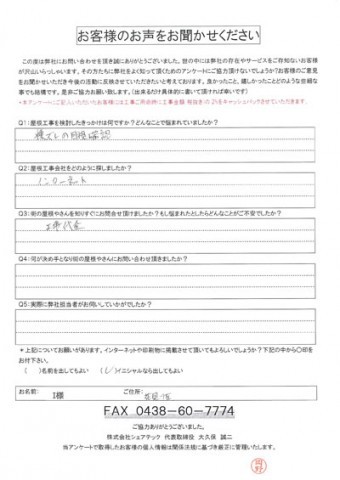 お客様のお声をお聞かせください
この度は弊社にお問い合わせを頂き誠にありがとうございました。世の中には弊社の存在やサービスをご存知ないお客様
が沢山いらっしゃいます。その方たちに弊社をよく知って頂くためのアンケートにご協力頂けないでしょうか?お客様のご意見
をお聞かせいただき今後の活動に反映させていただきたいと考えております。良かったこと、嬉しかったことどのような些細な
事でも結構です。是非ご協力お願い致します。(出来るだけ具体的に書いて頂ければ幸いです)
*本アンケートにご記入いただいたお客様には工事ご用命時に工事金額 税抜きの 2%をキャッシュバックさせていただきます。
Q1:屋根工事を検討したきっかけは何ですか?どんなことで悩まれていましたか?
確認
Q2:屋根工事会社をどのように探しましたか?
インターネット
Q3:街の屋根やさんを知りすぐにお問合せ頂けましたか?もし悩まれたとしたらどんなことがご不安でしたか?
工事代金
Q4:何が決め手となり街の屋根やさんにお問い合わせ頂きましたか?
Q5:実際に弊社担当者がお伺いしていかがでしたか?
*上記についてお願いがあります。インターネットや印刷物に掲載させて頂いてもよろしいでしょうか?下記の中から〇印を
お付け下さい。
( )名前を出してもよい ( )イニシャルなら出してもよい
お名前: I様 ご住所:
FAX 0438-60-7774
ご協力ありがとうございました。
株式会社シェアテック 代表取締役 大久保 誠二
当アンケートで取得したお客様の個人情報は関係法規に基づき厳正に管理いたします。